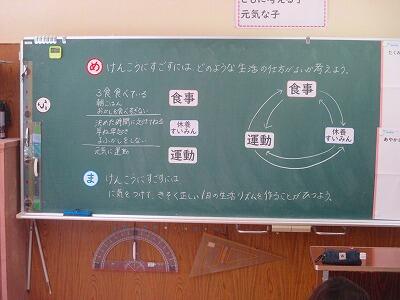 元気な子
め けんこうにすごすには、どのような生活の仕方がよいか考えよう。
3食食べている
朝ごはん
おかしを食べすぎない
決めた時間に
早ね早起き
よふかしをしない
元気に運動
食事
休養
すいみん
運動
食事
運動
休養
すいみん
ま けんこうにすごすには
に気をつけて、きそく正しい1日の生活リズムを作ることがひつよう。